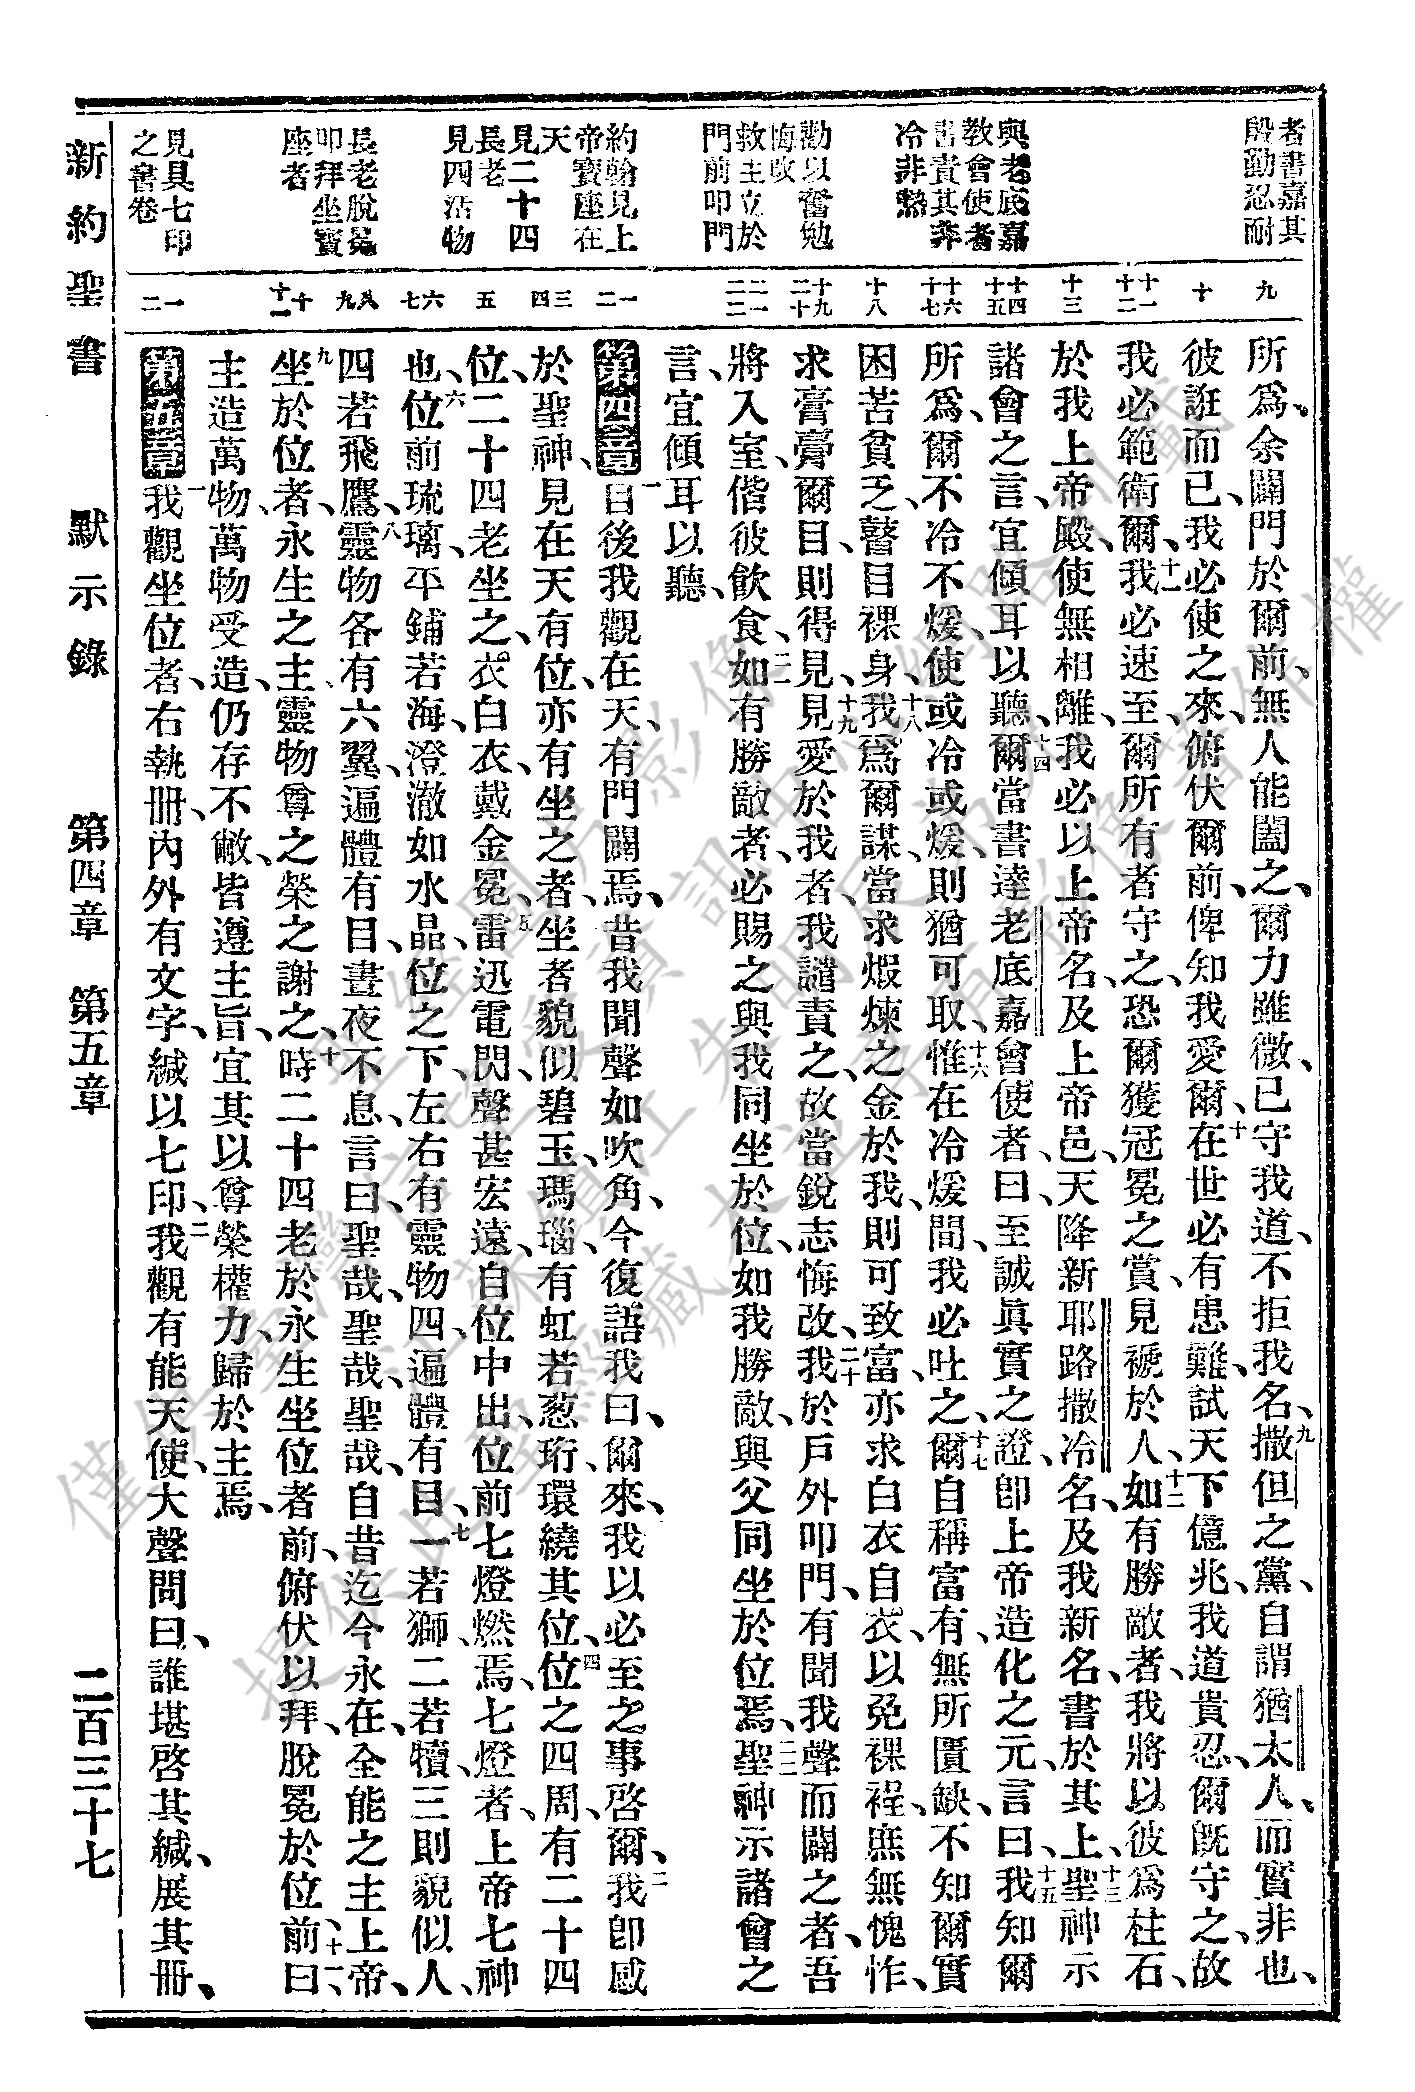 者書嘉其
殷勤忍耐
與老底嘉
教會使者
書責其非
冷非熱
勸以奮勉
悔改
救主立於
門前叩門
約翰見上
帝寶座在
天
見二十四
長老
見四活物
長老脫冕
叩拜坐寶
座者
見具七印
之書卷
九
十
十一
十二
十三
十四
十五
十六
十七
十八
十九
二十
二一
二二
一
二
三
四
五
六
七
八
九
十
十一
一
二
所爲、余闢門於爾前、無人能闔之、爾力雖微、已守我道、不拒我名、九撒但之黨、自謂猶太人、而實非也、
彼誑而已、我必使之來、俯伏爾前、俾知我愛爾、十在世必有患難、試天下億兆、我道貴忍、爾旣守之、故
我必範衛爾、十一我必速至、爾所有者守之、恐爾獲冠冕之賞、見褫於人、十二如有勝敵者、我將以彼爲柱石、
於我上帝殿、使無相離、我必以上帝名、及上帝邑、天降新耶路撒冷名、及我新名、書於其上、十三聖神示
諸會之言、宜傾耳以聽、十四爾當書達老底嘉會使者曰、至誠眞實之證、卽上帝造化之元、言曰、十五我知爾
所爲、爾不冷不煖、使或冷或煖、則猶可取、十六惟在冷煖間、我必吐之、十七爾自稱富有、無所匱缺、不知爾實
困苦貧乏、瞽目裸身、十八我爲爾謀、當求煅煉之金於我、則可致富、亦求白衣自衣、以免裸裎、庶無愧怍、
求膏膏爾目、則得見、十九見愛於我者、我譴責之、故當銳志悔改、二十我於戶外叩門、有聞我聲而闢之者、吾
將入室、偕彼飲食、二一如有勝敵者、必賜之與我同坐於位、如我勝敵、與父同坐於位焉、二二聖神示諸會之
言、宜傾耳以聽、
第四章 一日後我觀在天、有門闢焉、昔我聞聲如吹角、今復語我曰、爾來、我以必至之事啓爾、二我卽感
於聖神、見在天有位、亦有坐之者、三坐者貌似碧玉、瑪瑙、有虹若葱珩、環繞其位、四位之四周、有二十四
位、二十四老坐之、衣白衣、戴金冕、五雷迅電閃、聲甚宏遠、自位中出、位前七燈燃焉、七燈者、上帝七神
也、六位前琉璃、平鋪若海、澄澈如水晶、位之下、左右有靈物四、遍體有目、七一若獅、二若犢、三則貌似人、
四若飛鷹、八靈物各有六翼、遍體有目、晝夜不息、言曰、聖哉、聖哉、聖哉、自昔迄今永在、全能之主上帝、
九坐於位者、永生之主、靈物尊之榮之謝之、十時二十四老於永生坐位者前、俯伏以拜、脫冕於位前、十一曰、
主造萬物、萬物受造、仍存不敝、皆遵主旨、宜其以尊榮權力、歸於主焉、
第五章 一我觀坐位者、右執册、內外有文字、緘以七印、二我觀有能天使、大聲問曰、誰堪啓其緘、展其册、
新約聖書 默示錄 第四章 第五章 二百三十七